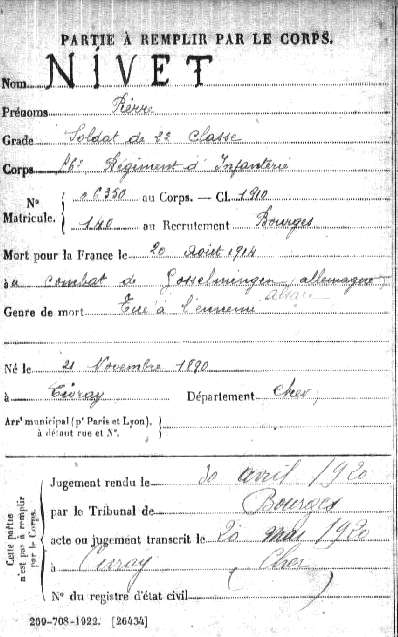 PARTIE À REMPLIR PAR LE CORPS.
Nom NIVET
Prénoms Pierre
Grade Soldat de 2e Classe
Corps Régiment d'Infanterie
N° Matricule. 0350 au Corps. — Cl. 1910
140 au Recrutement Bourges
Mort pour la France le 20 août 1914
à combat de Gosselmingen, allemagne
Genre de mort Tué à l'ennemi
Né le 21 Novembre 1890
à Civray Département Cher,
Arrt municipal (pr Paris et Lyon), à défaut rue et N°.
Cette partie n'est pas à remplir par le Corps.
Jugement rendu le 30 avril 1920
par le Tribunal de Bourges
acte ou jugement transcrit le 20 mai 1920
à Civray (Cher)
N° du registre d'état civil
209-708-1922. [26434]